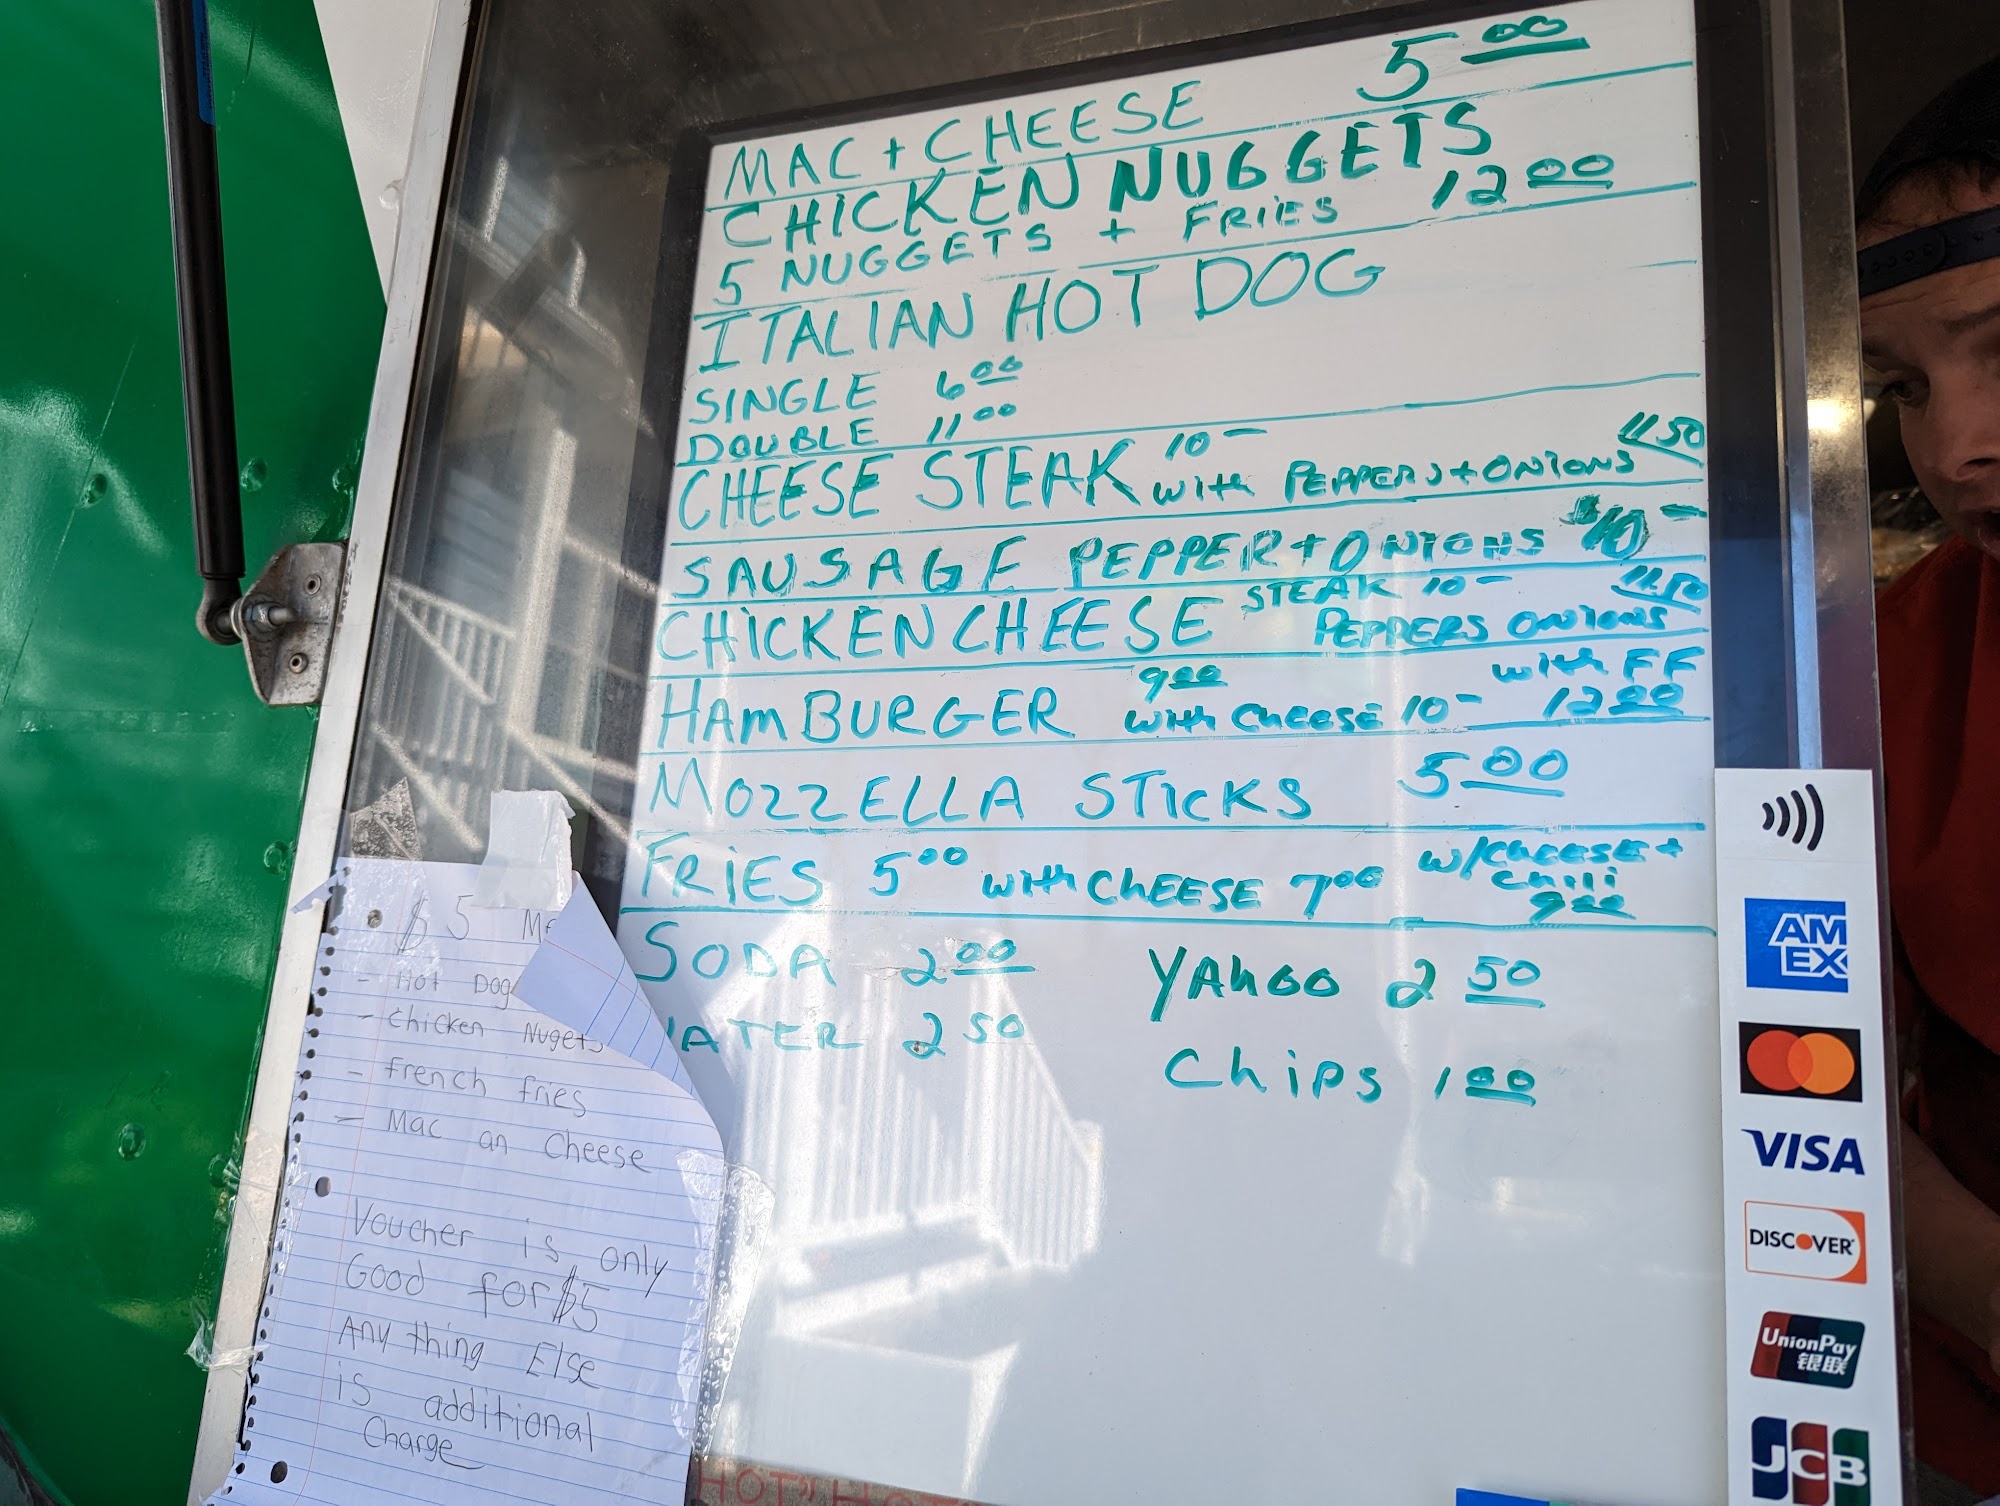 MAC + CHEESE 5 00
CHICKEN NUGGETS
5 NUGGETS + FRIES 12 00
ITALIAN HOT DOG
SINGLE 6 00
DOUBLE 11 00
CHEESE STEAK 10 - with PEPPERS + ONIONS 11 50
SAUSAGE PEPPER + ONIONS $10 -
CHICKEN CHEESE STEAK 10 - PEPPERS ONIONS 11 50
HAMBURGER 9 00 with CHEESE 10 - with FF 12 00
MOZZELLA STICKS 5 00
FRIES 5 00 with CHEESE 7 00 w/CHEESE + Chili 9 00
SODA 2 00 YAHOO 2 50
ATER 2 50
Chips 1 00
$5
- Hot Dog
- Chicken Nugets
- French fries
- Mac an Cheese
Voucher is only
Good for $5
Any thing Else
is additional
Charge
AM
EX
VISA
DISCOVER
UnionPay
银联
JCB